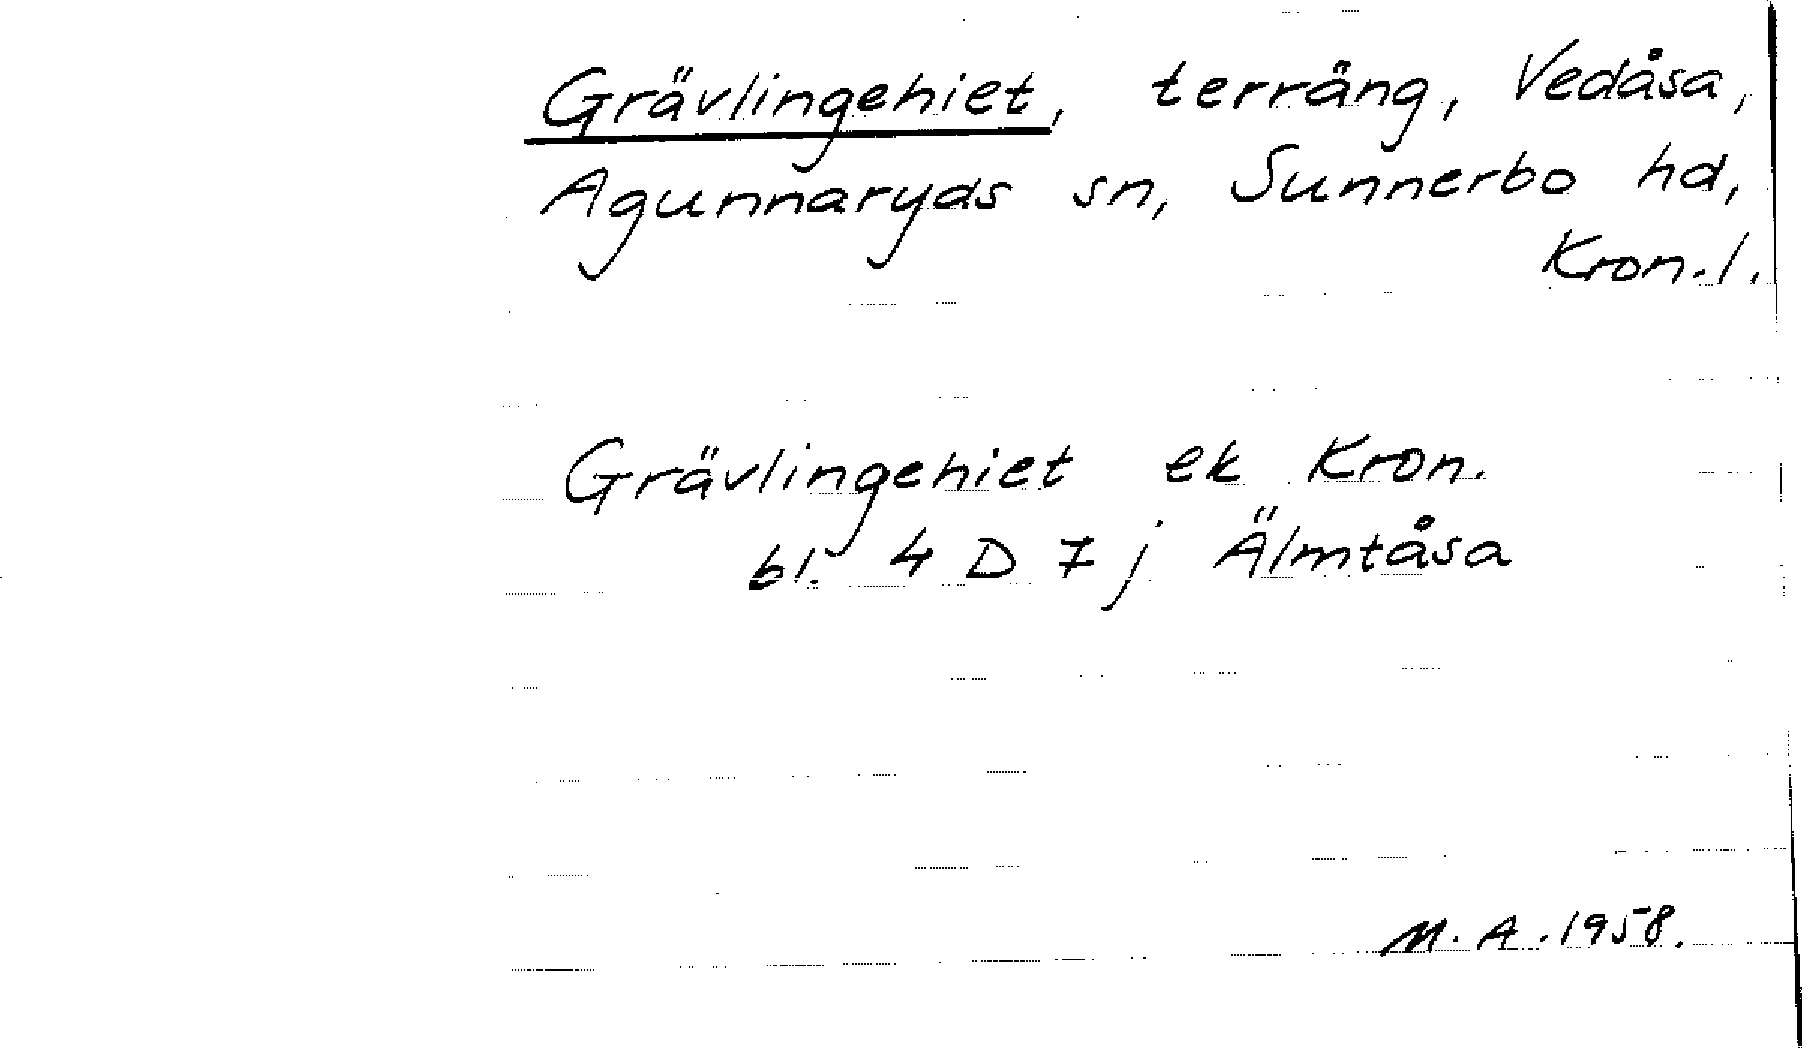 Grävlingehiet, terräng, Vedåsa,
Agunnaryds sn, Sunnerbo hd,
Kron. l.
Grävlingehiet ek Kron.
bl. 4 D 7 j Älmtåsa
M. A. 1958.